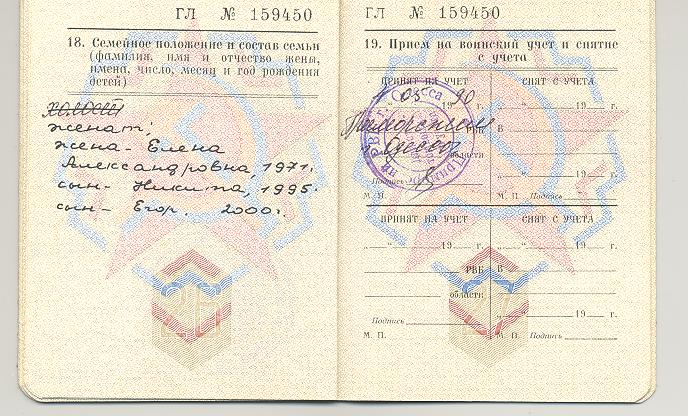 ГЛ № 159450
18. Семейное положение и состав семьи
(фамилия, имя и отчество жены,
имена, число, месяц и год рождения
детей)
холост
женат;
жена - Елена
Александровна, 1971.
сын - Никита, 1995.
сын - Егор. 2000г.
ГЛ № 159450
19. Прием на воинский учет и снятие
с учета
ПРИНЯТ НА УЧЕТ
СНЯТ С УЧЕТА
" 05 1990 г.
" " 19 г.
Приморским РВК
В
г. Одессы области
" " 19 г.
Подпись
М. П.
М. П. Подпись
ПРИНЯТ НА УЧЕТ
СНЯТ С УЧЕТА
" " 19 г.
" " 19 г.
РВК
В
области
" " 19 г.
Подпись
М. П.
М. П. Подпись